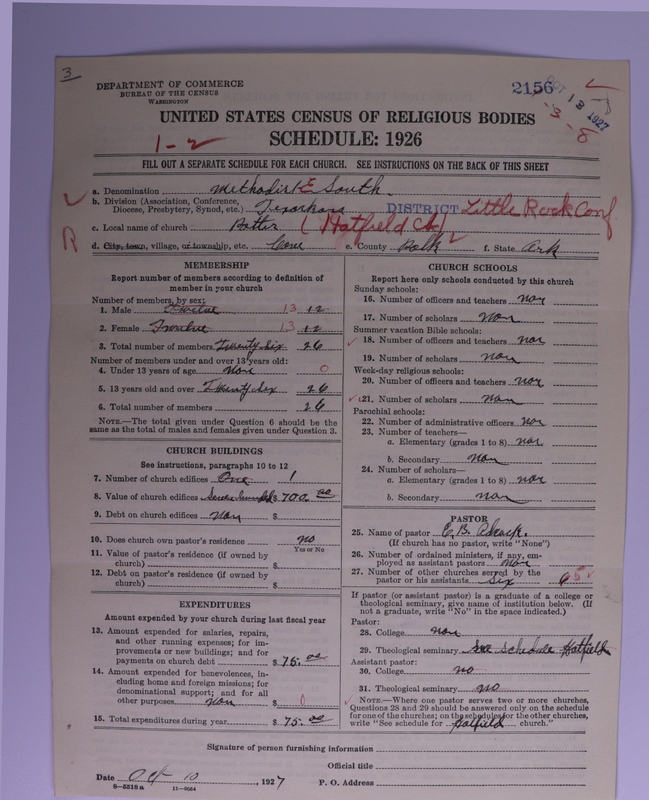 3
DEPARTMENT OF COMMERCE
BUREAU OF THE CENSUS
WASHINGTON
2156
OCT 13 1927
3-8
UNITED STATES CENSUS OF RELIGIOUS BODIES
1-2
SCHEDULE: 1926
FILL OUT A SEPARATE SCHEDULE FOR EACH CHURCH. SEE INSTRUCTIONS ON THE BACK OF THIS SHEET
a. Denomination Methodist E South
b. Division (Association, Conference, Diocese, Presbytery, Synod, etc.) Texarkana DISTRICT Little Rock Conf
c. Local name of church Potter (Hatfield Ct)
d. City, town, village, or township, etc. Cove e. County Polk f. State Ark
MEMBERSHIP
Report number of members according to definition of member in your church
Number of members, by sex:
1. Male Twelve 13 12
2. Female Twelve 13 12
3. Total number of members Twenty Six 26
Number of members under and over 13 years old:
4. Under 13 years of age non 0
5. 13 years old and over Twenty Six 26
6. Total number of members 26
NOTE.—The total given under Question 6 should be the same as the total of males and females given under Question 3.
CHURCH BUILDINGS
See instructions, paragraphs 10 to 12
7. Number of church edifices One 1
8. Value of church edifices Seven Hundred $ 700.00
9. Debt on church edifices non $
10. Does church own pastor's residence no
Yes or No
11. Value of pastor's residence (if owned by church) $
12. Debt on pastor's residence (if owned by church) $
EXPENDITURES
Amount expended by your church during last fiscal year
13. Amount expended for salaries, repairs, and other running expenses; for improvements or new buildings; and for payments on church debt $ 75.00
14. Amount expended for benevolences, including home and foreign missions; for denominational support; and for all other purposes non $ 0
15. Total expenditures during year $ 75.00
CHURCH SCHOOLS
Report here only schools conducted by this church
Sunday schools:
16. Number of officers and teachers non
17. Number of scholars non
Summer vacation Bible schools:
18. Number of officers and teachers non
19. Number of scholars non
Week-day religious schools:
20. Number of officers and teachers non
21. Number of scholars non
Parochial schools:
22. Number of administrative officers non
23. Number of teachers—
a. Elementary (grades 1 to 8) non
b. Secondary non
24. Number of scholars—
a. Elementary (grades 1 to 8) non
b. Secondary non
PASTOR
25. Name of pastor E. B. Adcock.
(If church has no pastor, write "None")
26. Number of ordained ministers, if any, employed as assistant pastors non
27. Number of other churches served by the pastor or his assistants six 6 5
If pastor (or assistant pastor) is a graduate of a college or theological seminary, give name of institution below. (If not a graduate, write "No" in the space indicated.)
Pastor:
28. College non
29. Theological seminary See Schedule Hatfield
Assistant pastor:
30. College no
31. Theological seminary no
NOTE.—Where one pastor serves two or more churches, Questions 28 and 29 should be answered only on the schedule for one of the churches; on the schedules for the other churches, write "See schedule for Hatfield church."
Signature of person furnishing information
Official title
Date Oct 10, 1927 P. O. Address
8-5518a 11-9564